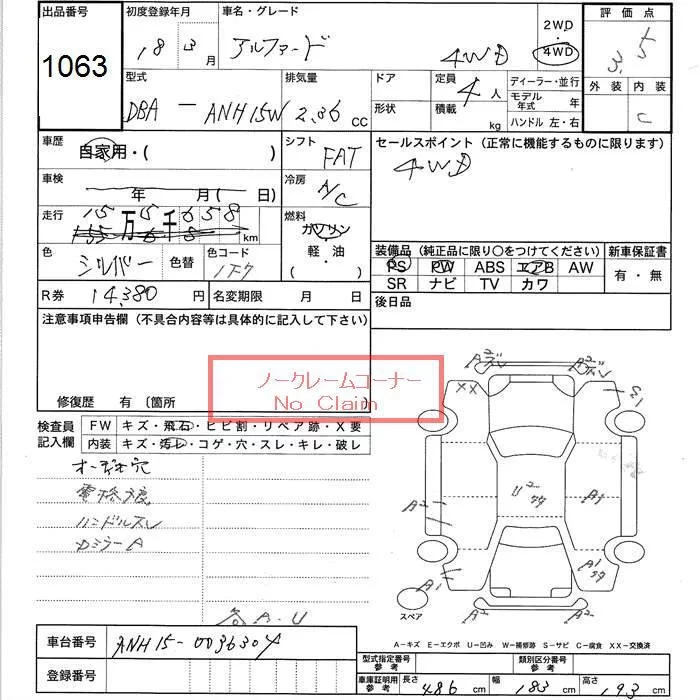 出品番号
1063
初度登録年月
18 3月
車名・グレード
アルファード 4WD
2WD
4WD
評価点
3.5
外装 内装
C
型式
DBA - ANH15W
排気量
2.36 cc
ドア
形状
定員
4人
積載
kg
ディーラー・並行
モデル年式 年
ハンドル 左・右
車歴
自家用・( )
シフト
FAT
セールスポイント(正常に機能するものに限ります)
4WD
車検
年 月( 日)
冷房
走行
15万5千658
km
燃料
ガソリン
軽・油
・
( )
色
シルバー
色替
色コード
1F7
装備品(純正品に限り○をつけてください)
PS PW ABS エアB AW
SR ナビ TV カワ
新車保証書
有・無
R券 14,380円
名変期限 月 日
後日品
注意事項申告欄(不具合内容等は具体的に記入して下さい)
ノークレームコーナー
No Claim
修復歴 有〔箇所
検査員記入欄
FW キズ・飛石・ヒビ割・リペア跡・X要
内装 キズ・汚レ・コゲ・穴・スレ・キレ・破レ
ハンドルスレ
カミラーA
各A・U
XX
A2
U2
A1
A1
A1
A2
A2
スペア
A-キズ E-エクボ U-凹み W-補修跡 S-サビ C-腐食 XX-交換済
車台番号
ANH15-0036304
登録番号
型式指定番号
参考
類別区分番号
参考
車庫証明用
参考
長さ 486 cm
幅 183 cm
高さ 193 cm